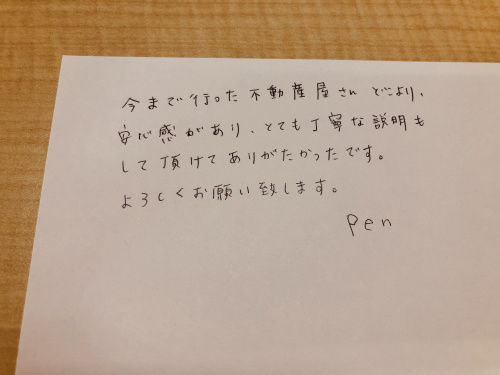 今まで行った不動産屋さんどこより、
安心感があり、とても丁寧な説明も
して頂けてありがたかったです。
よろしくお願い致します。
Pen